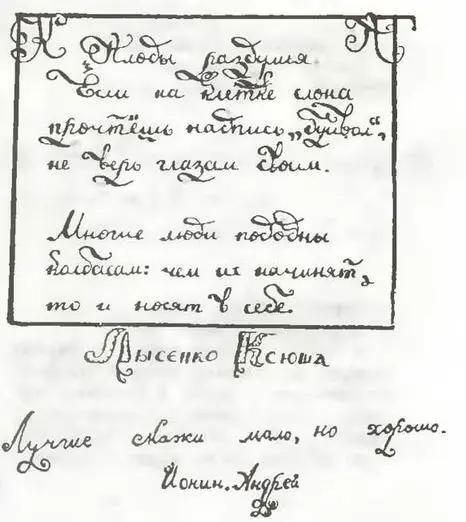 К К
Плоды раздумья
Если на клетке слона
прочтёшь надпись „буйвол“,
не верь глазам своим.
Многие люди подобны
колбасам: чем их начинят,
то и носят в себе.
Лысенко Ксюша
Лучше скажи мало, но хорошо.
Ионин Андрей